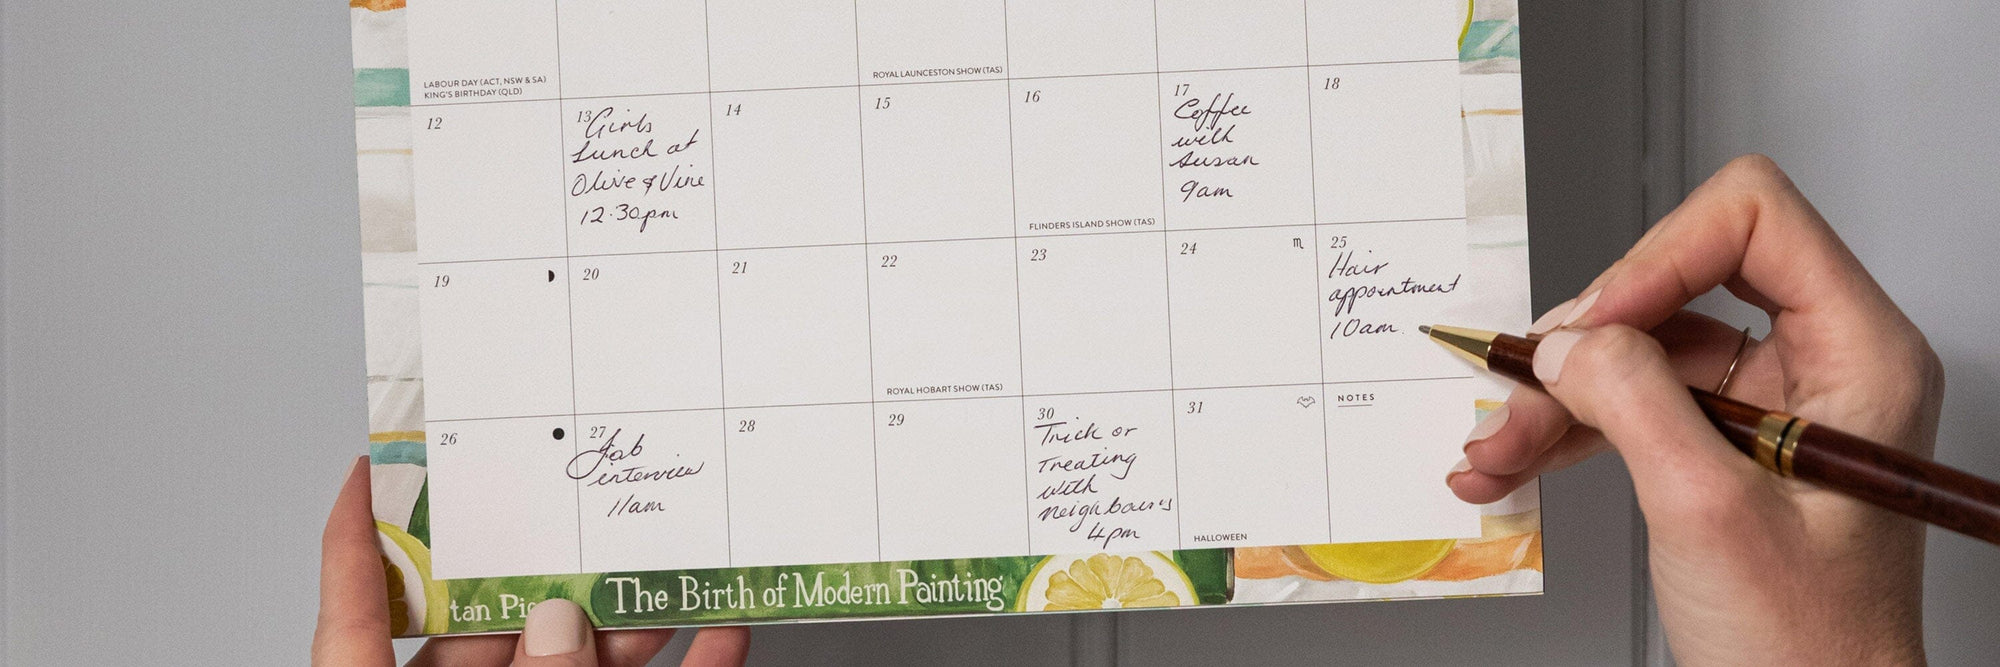 LABOUR DAY (ACT, NSW & SA)
KING'S BIRTHDAY (QLD)
ROYAL LAUNCESTON SHOW (TAS)
12
13
Girls
Lunch at
Olive & Vine
12.30pm
14
15
16
FLINDERS ISLAND SHOW (TAS)
17
Coffee
with
Susan
9am
18
19
20
21
22
ROYAL HOBART SHOW (TAS)
23
24
♏
25
Hair
appointment
10am.
26
27
Job
interview
11am
28
29
30
Trick or
Treating
with
neighbours
4pm
31
HALLOWEEN
NOTES
tan Pic
The Birth of Modern Painting